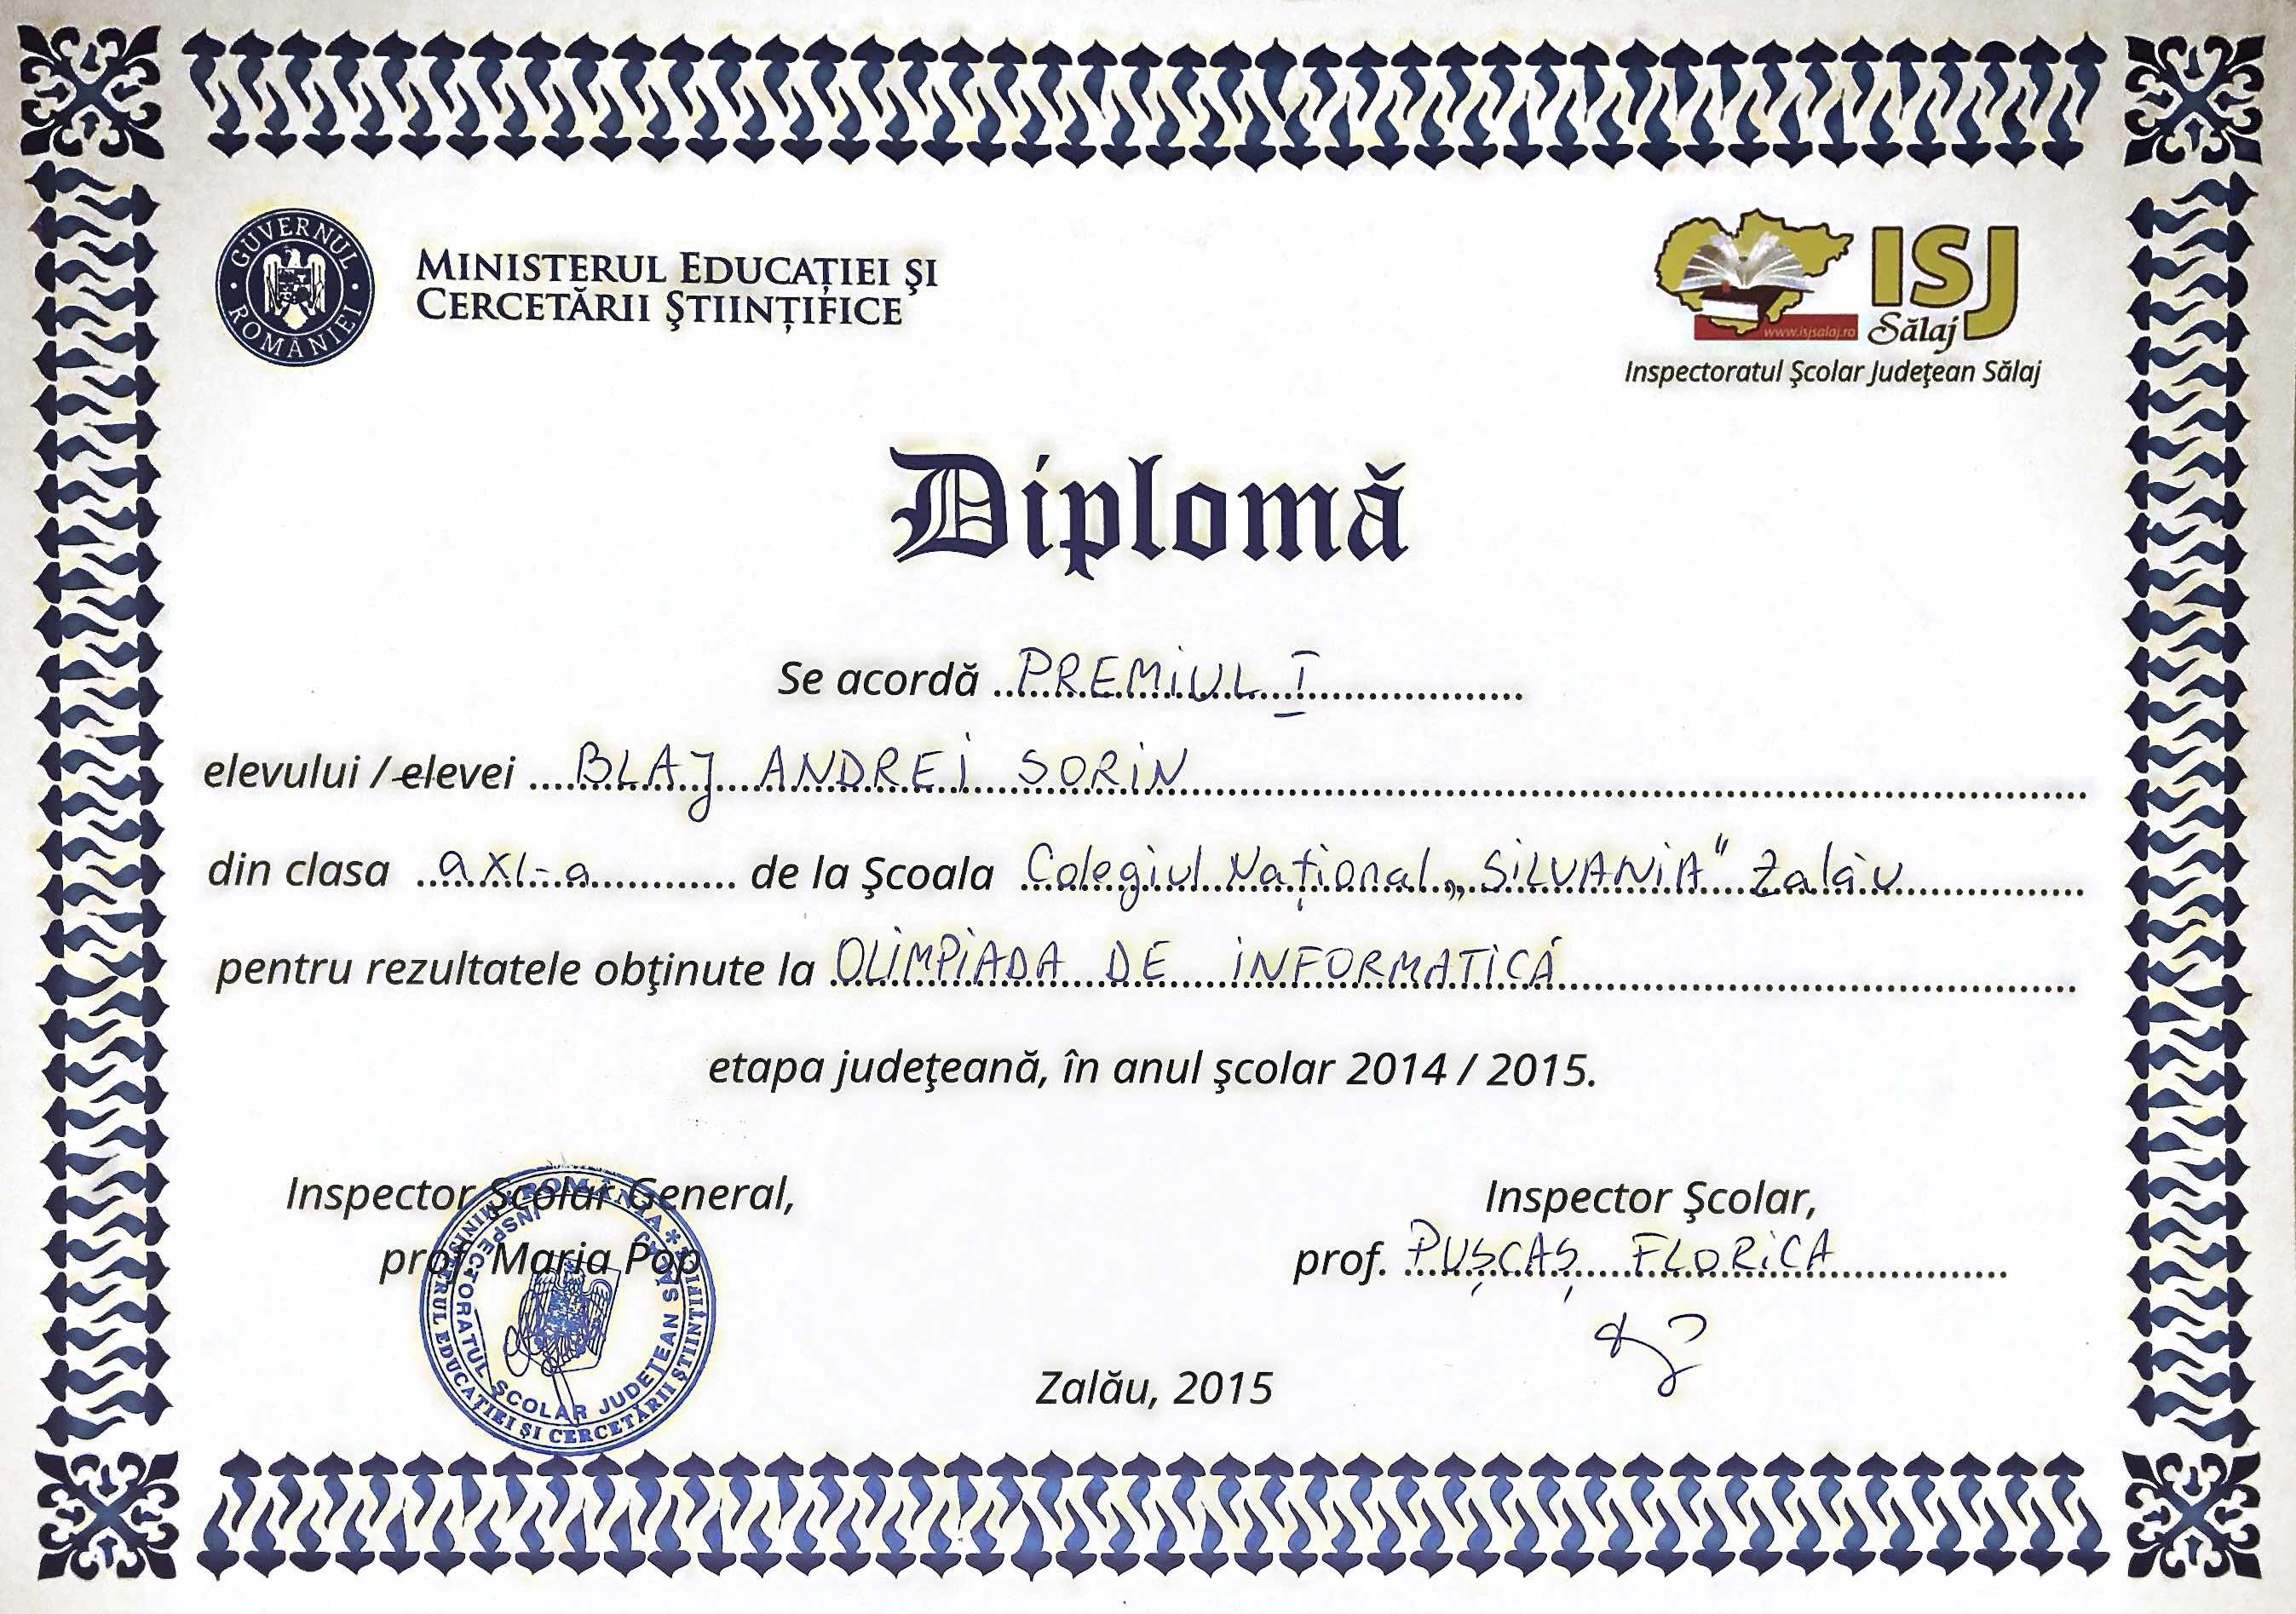 GUVERNUL ROMÂNIEI
MINISTERUL EDUCAȚIEI ȘI
CERCETĂRII ȘTIINȚIFICE
ISJ
Sălaj
www.isjsalaj.ro
Inspectoratul Şcolar Judeţean Sălaj
Diplomă
Se acordă PREMIUL I
elevului / elevei BLAJ ANDREI SORIN
din clasa a XI-a de la Şcoala Colegiul Național „SILVANIA" Zalău
pentru rezultatele obţinute la OLIMPIADA DE INFORMATICĂ
etapa judeţeană, în anul şcolar 2014 / 2015.
Inspector Şcolar General,
prof. Maria Pop
Inspector Şcolar,
prof. PUȘCAȘ FLORICA
ROMÂNIA * MINISTERUL EDUCAȚIEI ȘI CERCETĂRII ȘTIINȚIFICE
INSPECTORATUL ȘCOLAR JUDEȚEAN SĂLAJ
Zalău, 2015